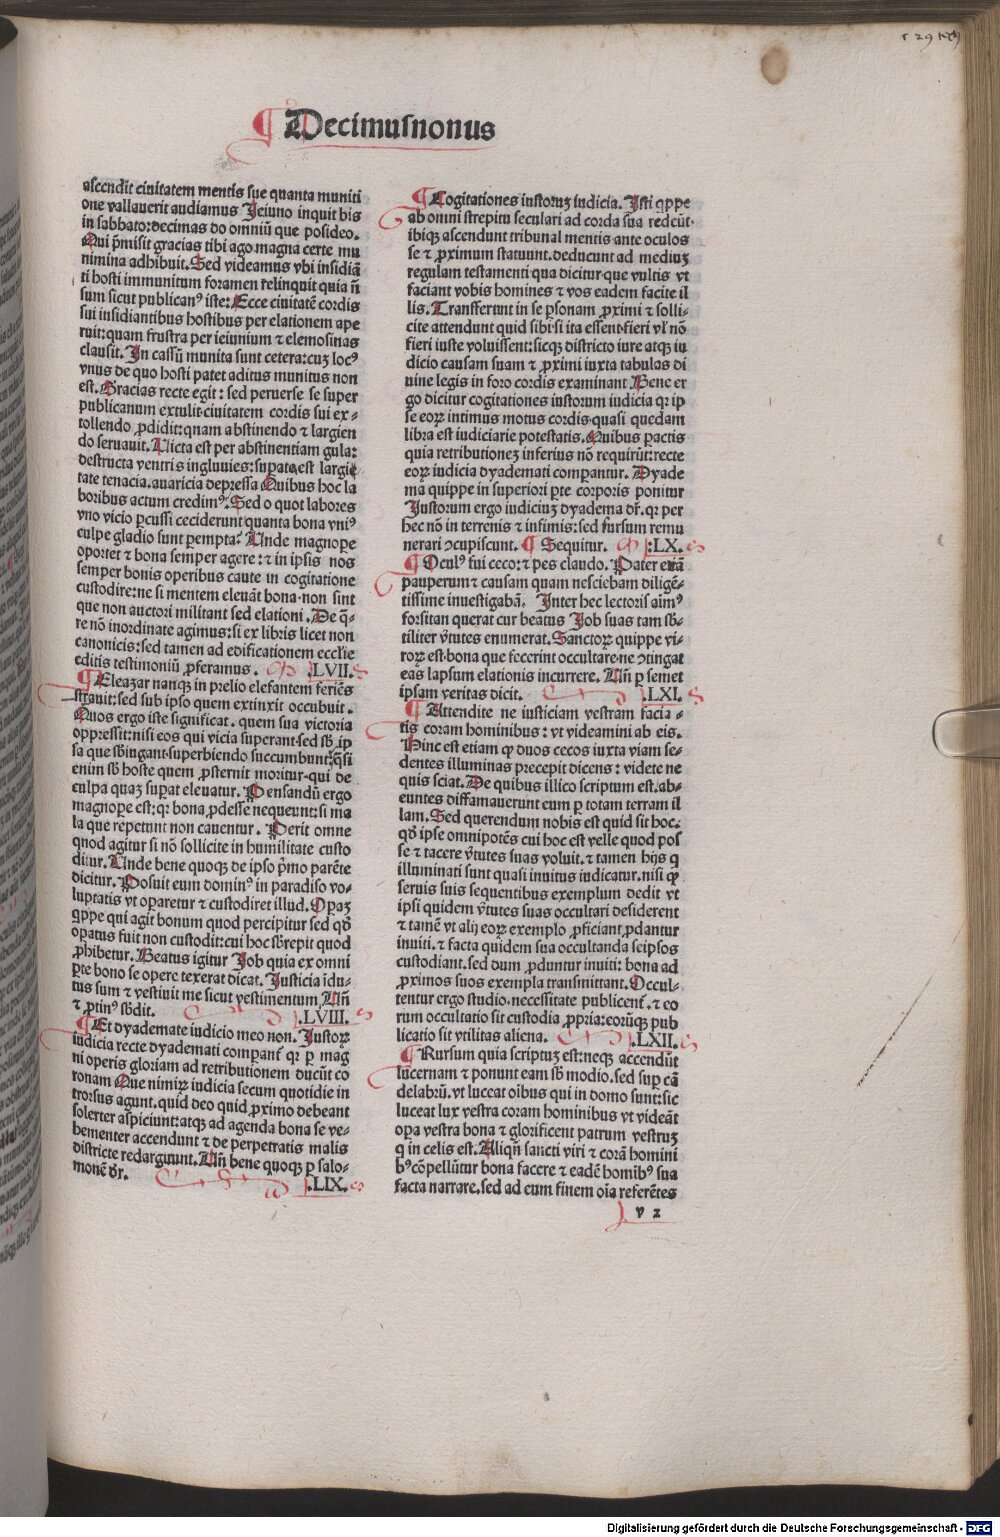 Decimusnonus
ascendit ciuitatem mentis sue quanta muniti
one vallauerit audiamus Jeiuno inquit bis
in sabbato: decimas do omniū que posideo.
Qui p̄misit gracias tibi ago magna certe mu
nimina adhibuit. Sed videamus vbi insidiā
ti hosti immunitum foramen relinquit quia nō
sum sicut publicanꝰ iste: Ecce ciuitatē cordis
sui insidiantibus hostibus per elationem ape
ruit: quam frustra per ieiunium ⁊ elemosinas
clausit. In cassū munita sunt cetera: cuz locꝰ
vnus de quo hosti patet aditus munitus non
est. Gracias recte egit: sed peruerse se super
publicanum extulit ciuitatem cordis sui ex-
tollendo ꝓdidit: quam abstinendo ⁊ largien
do seruauit. Victa est per abstinentiam gula:
destructa ventris ingluuies: suꝑata est largi-
tate tenacia. auaricia depressa Quibus hoc la
boribus actum credimꝰ. Sed o quot labores
vno vicio ꝑcussi ceciderunt quanta bona vniꝰ
culpe gladio sunt ꝑempta? Unde magnopere
oportet ⁊ bona semper agere: ⁊ in ipsis nos
semper bonis operibus caute in cogitatione
custodire: ne si mentem eleuāt bona non sint
que non auctori militant sed elationi. De q̄-
re nō inordinate agimus: si ex libris licet non
canonicis: sed tamen ad edificationem ecclie
editis testimoniū ꝓferamus. .LVII.
Eleazar nanqꝫ in prelio elefantem feriēs
strauit: sed sub ipso quem extinxit occubuit.
Quos ergo iste significat. quem sua victoria
oppressit: nisi eos qui vicia superant sed sb̄ ip
sa que sb̄iugant superbiendo succumbunt: q̄si
enim sb̄ hoste quem ꝓsternit moritur qui de
culpa quaꝫ suꝑat eleuatur. Pensandū ergo
magnopere est: qꝛ bona ꝓdesse nequeunt: si ma
la que repetunt non cauentur. Perit omne
quod agitur si nō sollicite in humilitate custo
ditur. Unde bene quoqꝫ de ipso p̄mo parēte
dicitur. Posuit eum dominꝰ in paradiso vo-
luptatis vt operaretur ⁊ custodiret illud. Operaꝫ
qppe qui agit bonum quod percipitur sed qd̓
opatus fuit non custodit: cui hoc sb̄repit quod
ꝓhibetur. Beatus igitur Job quia ex omni
ꝑte bono se opere texerat dicat. Justicia īdu-
tus sum ⁊ vestiuit me sicut vestimentum Un̄
⁊ ꝓtinꝰ sb̄dit. .LVIII.
Et dyademate iudicio meo non. Justoꝝ
iudicia recte dyademati comparant̄ qꝛ ꝑ mag
ni operis gloriam ad retributionem ducūt co
ronam Que nimirꝫ iudicia secum quotidie in
trorsus agunt. quid deo quid ꝓximo debeant
solerter aspiciunt: atqꝫ ad agenda bona se ve-
hementer accendunt ⁊ de perpetratis malis
districte redarguunt. Un̄ bene quoqꝫ ꝑ salo-
monē dr̄. .LIX.
Cogitationes iustoruꝫ iudicia. Isti qppe
ab omni strepitu seculari ad corda sua redeūt.
ibiqꝫ ascendunt tribunal mentis ante oculos
se ⁊ ꝓximum statuunt. deducunt ad mediuꝫ
regulam testamenti qua dicitur que vultis vt
faciant vobis homines ⁊ vos eadem facite il
lis. Transferunt in se ꝑsonam ꝓximi ⁊ solli-
cite attendunt quid sibi si ita essent fieri vl̓ nō
fieri iuste voluissent: sicqꝫ districto iure atqꝫ iu
dicio causam suam ⁊ ꝓximi iuxta tabulas di
uine legis in foro cordis examinant Bene er
go dicitur cogitationes iustorum iudicia qꝛ ip
se eoꝝ intimus motus cordis quasi quedam
libra est iudiciarie potestatis. Quibus ꝑactis
quia retributioneꝫ inferius nō requirūt: recte
eoꝝ iudicia dyademati comparantur. Dyade
ma quippe in superiori ꝑte corporis ponitur
Justorum ergo iudiciuꝫ dyadema dr̄. qꝛ per
hec nō in terrenis ⁊ infimis: sed sursum remu
nerari ꝯcupiscunt. Sequitur. .LX.
Oculꝰ fui ceco: ⁊ pes claudo. Pater erā
pauperum ⁊ causam quam nesciebam diligē-
tissime inuestigabā. Inter hec lectoris aimꝰ
forsitan querat cur beatus Job suas tam sb̄-
tiliter v̓tutes enumerat. Sanctoꝝ quippe vi-
roꝝ est bona que fecerint occultare ne ꝯtingat
eas lapsum elationis incurrere. Un̄ ꝑ semet
ipsam veritas dicit. .LXI.
Attendite ne iusticiam vestram facia-
tis coram hominibus: vt videamini ab eis.
Hinc est etiam qꝙ duos cecos iuxta viam se-
dentes illuminas precepit dicens: videte ne
quis sciat. De quibus illico scriptum est. ab-
euntes diffamauerunt eum ꝑ totam terram il
lam. Sed querendum nobis est quid sit hoc.
qd̓ ipse omnipotēs cui hoc est velle quod pos
se ⁊ tacere v̓tutes suas voluit. ⁊ tamen hijs q
illuminati sunt quasi inuitus indicatur. nisi qꝙ
seruis suis sequentibus exemplum dedit vt
ipsi quidem v̓tutes suas occultari desiderent
⁊ tamē vt alij eoꝝ exemplo ꝓficiant ꝓdantur
inuiti. ⁊ facta quidem sua occultanda seipsos
custodiant. sed dum ꝓduntur inuiti: bona ad
ꝓximos suos exempla transmittant. Occul-
tentur ergo studio. necessitate publicent̄. ⁊ eo
rum occultatio sit custodia ꝓpria: eorūqꝫ pub
licatio sit vtilitas aliena. .LXII.
Rursum quia scriptuꝫ est: neqꝫ accendūt
lucernam ⁊ ponunt eam sb̄ modio. sed suꝑ cā
delabrū. vt luceat oībus qui in domo sunt: sic
luceat lux vestra coram hominibus vt videāt
opa vestra bona ⁊ glorificent patrum vestruꝫ
q in celis est. Aliqn̄ sancti viri ⁊ corā homini
bꝰ cōpellūtur bona facere ⁊ eadē homībꝰ sua
facta narrare. sed ad eum finem oīa referētes
v 2
Digitalisierung gefördert durch die Deutsche Forschungsgemeinschaft - DFG